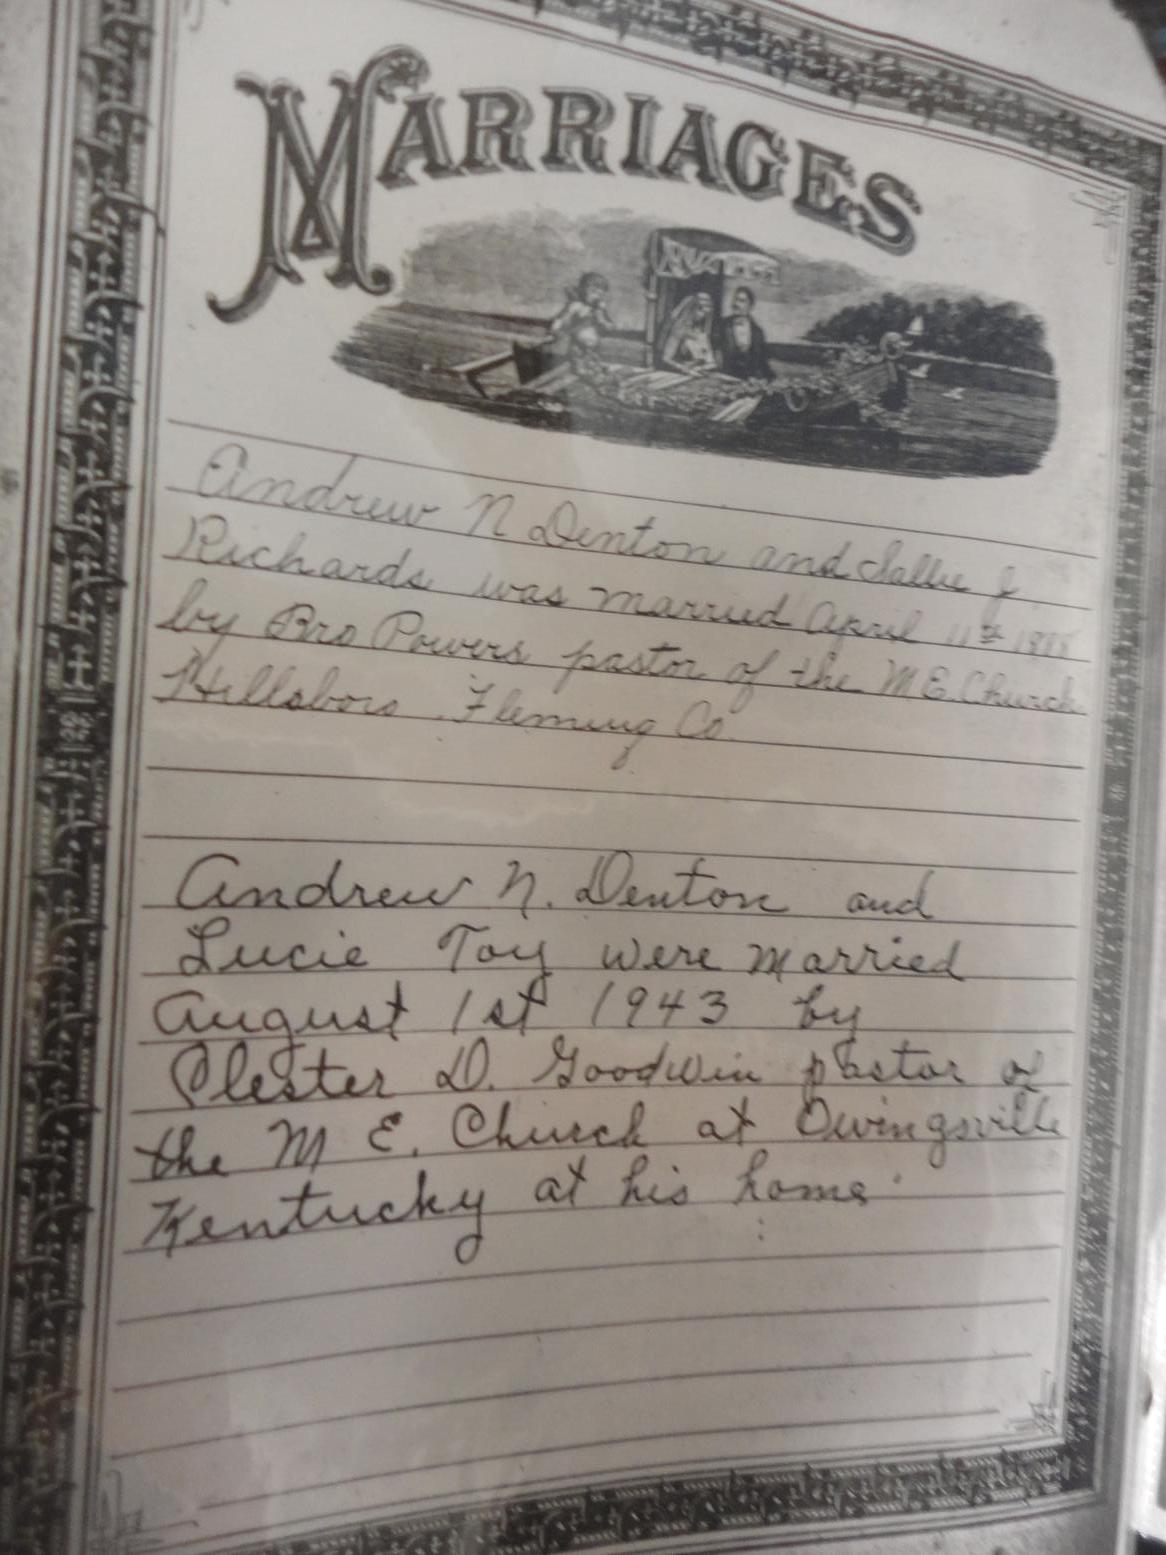 MARRIAGES
Andrew N Denton and Sallie J
Richards was married April 11th
by Bro Powers pastor of the M E Church
Hillsboro Fleming Co.
Andrew N. Denton and
Lucie Toy were married
August 1st 1943 by
Clester D. Goodwin pastor of
the M E. Church at Owingsville
Kentucky at his home.